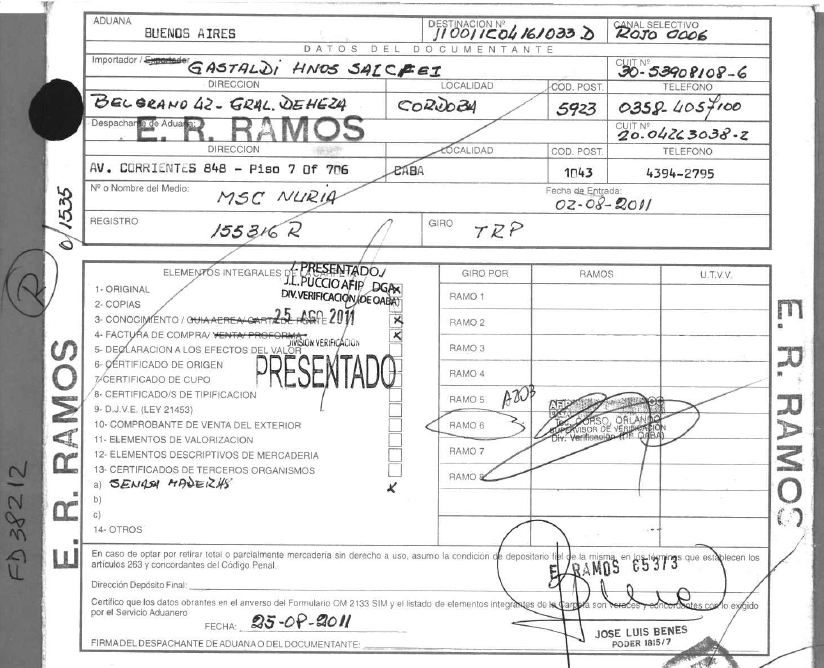 ADUANA
BUENOS AIRES
DESTINACION Nº
11001IC04161033 D
CANAL SELECTIVO
ROJO 0006
DATOS DEL DOCUMENTANTE
Importador / Exportador
GASTALDI HNOS SAICFEI
CUIT Nº
30-53908108-6
DIRECCION
LOCALIDAD
COD. POST.
TELEFONO
BELGRANO 42- GRAL. DEHEZA
CORDOBA
5923
0358-4057100
Despachante de Aduana:
E. R. RAMOS
CUIT Nº
20-04263038-2
DIRECCION
LOCALIDAD
COD. POST.
TELEFONO
AV. CORRIENTES 848 - PISO 7 Of 706
CABA
1043
4394-2795
Nº o Nombre del Medio:
MSC NURIA
Fecha de Entrada:
02-08-2011
REGISTRO
155316 R
GIRO
TRP
0/1535
R
FD38212
E. R. RAMOS
ELEMENTOS INTEGRALES DE LA CARPETA
1- ORIGINAL x
2- COPIAS
3- CONOCIMIENTO / GUIA AEREA / CARTA DE PORTE x
4- FACTURA DE COMPRA / VENTA / PROFORMA x
5- DECLARACION A LOS EFECTOS DEL VALOR
6- CERTIFICADO DE ORIGEN
7- CERTIFICADO DE CUPO
8- CERTIFICADO/S DE TIPIFICACION
9- D.J.V.E. (LEY 21453)
10- COMPROBANTE DE VENTA DEL EXTERIOR
11- ELEMENTOS DE VALORIZACION
12- ELEMENTOS DESCRIPTIVOS DE MERCADERIA
13- CERTIFICADOS DE TERCEROS ORGANISMOS
a) SENASA MADERAS x
b)
c)
14- OTROS
PRESENTADO
J.L. PUCCIO AFIP DGA
DIV. VERIFICACION (DE OABA)
25 AGO 2011
DIVISION VERIFICACION
PRESENTADO
GIRO POR
RAMOS
U.T.V.V.
RAMO 1
RAMO 2
RAMO 3
RAMO 4
RAMO 5
RAMO 6
RAMO 7
RAMO 8
A203
CORSO, ORLANDO
SUPERVISOR DE VERIFICACION
Div. Verificación (DE OABA)
E. R. RAMOS
En caso de optar por retirar total o parcialmente mercaderia sin derecho a uso, asumo la condición de depositario fiel de la misma, en los términos que establecen los
artículos 263 y concordantes del Código Penal.
Dirección Depósito Final:
E RAMOS 65373
Certifico que los datos obrantes en el anverso del Formulario OM 2133 SIM y el listado de elementos integrantes de la Carpeta son veraces y concordantes con lo exigido
por el Servicio Aduanero
FECHA: 25-08-2011
JOSE LUIS BENES
PODER 1815/7
FIRMA DEL DESPACHANTE DE ADUANA O DEL DOCUMENTANTE: